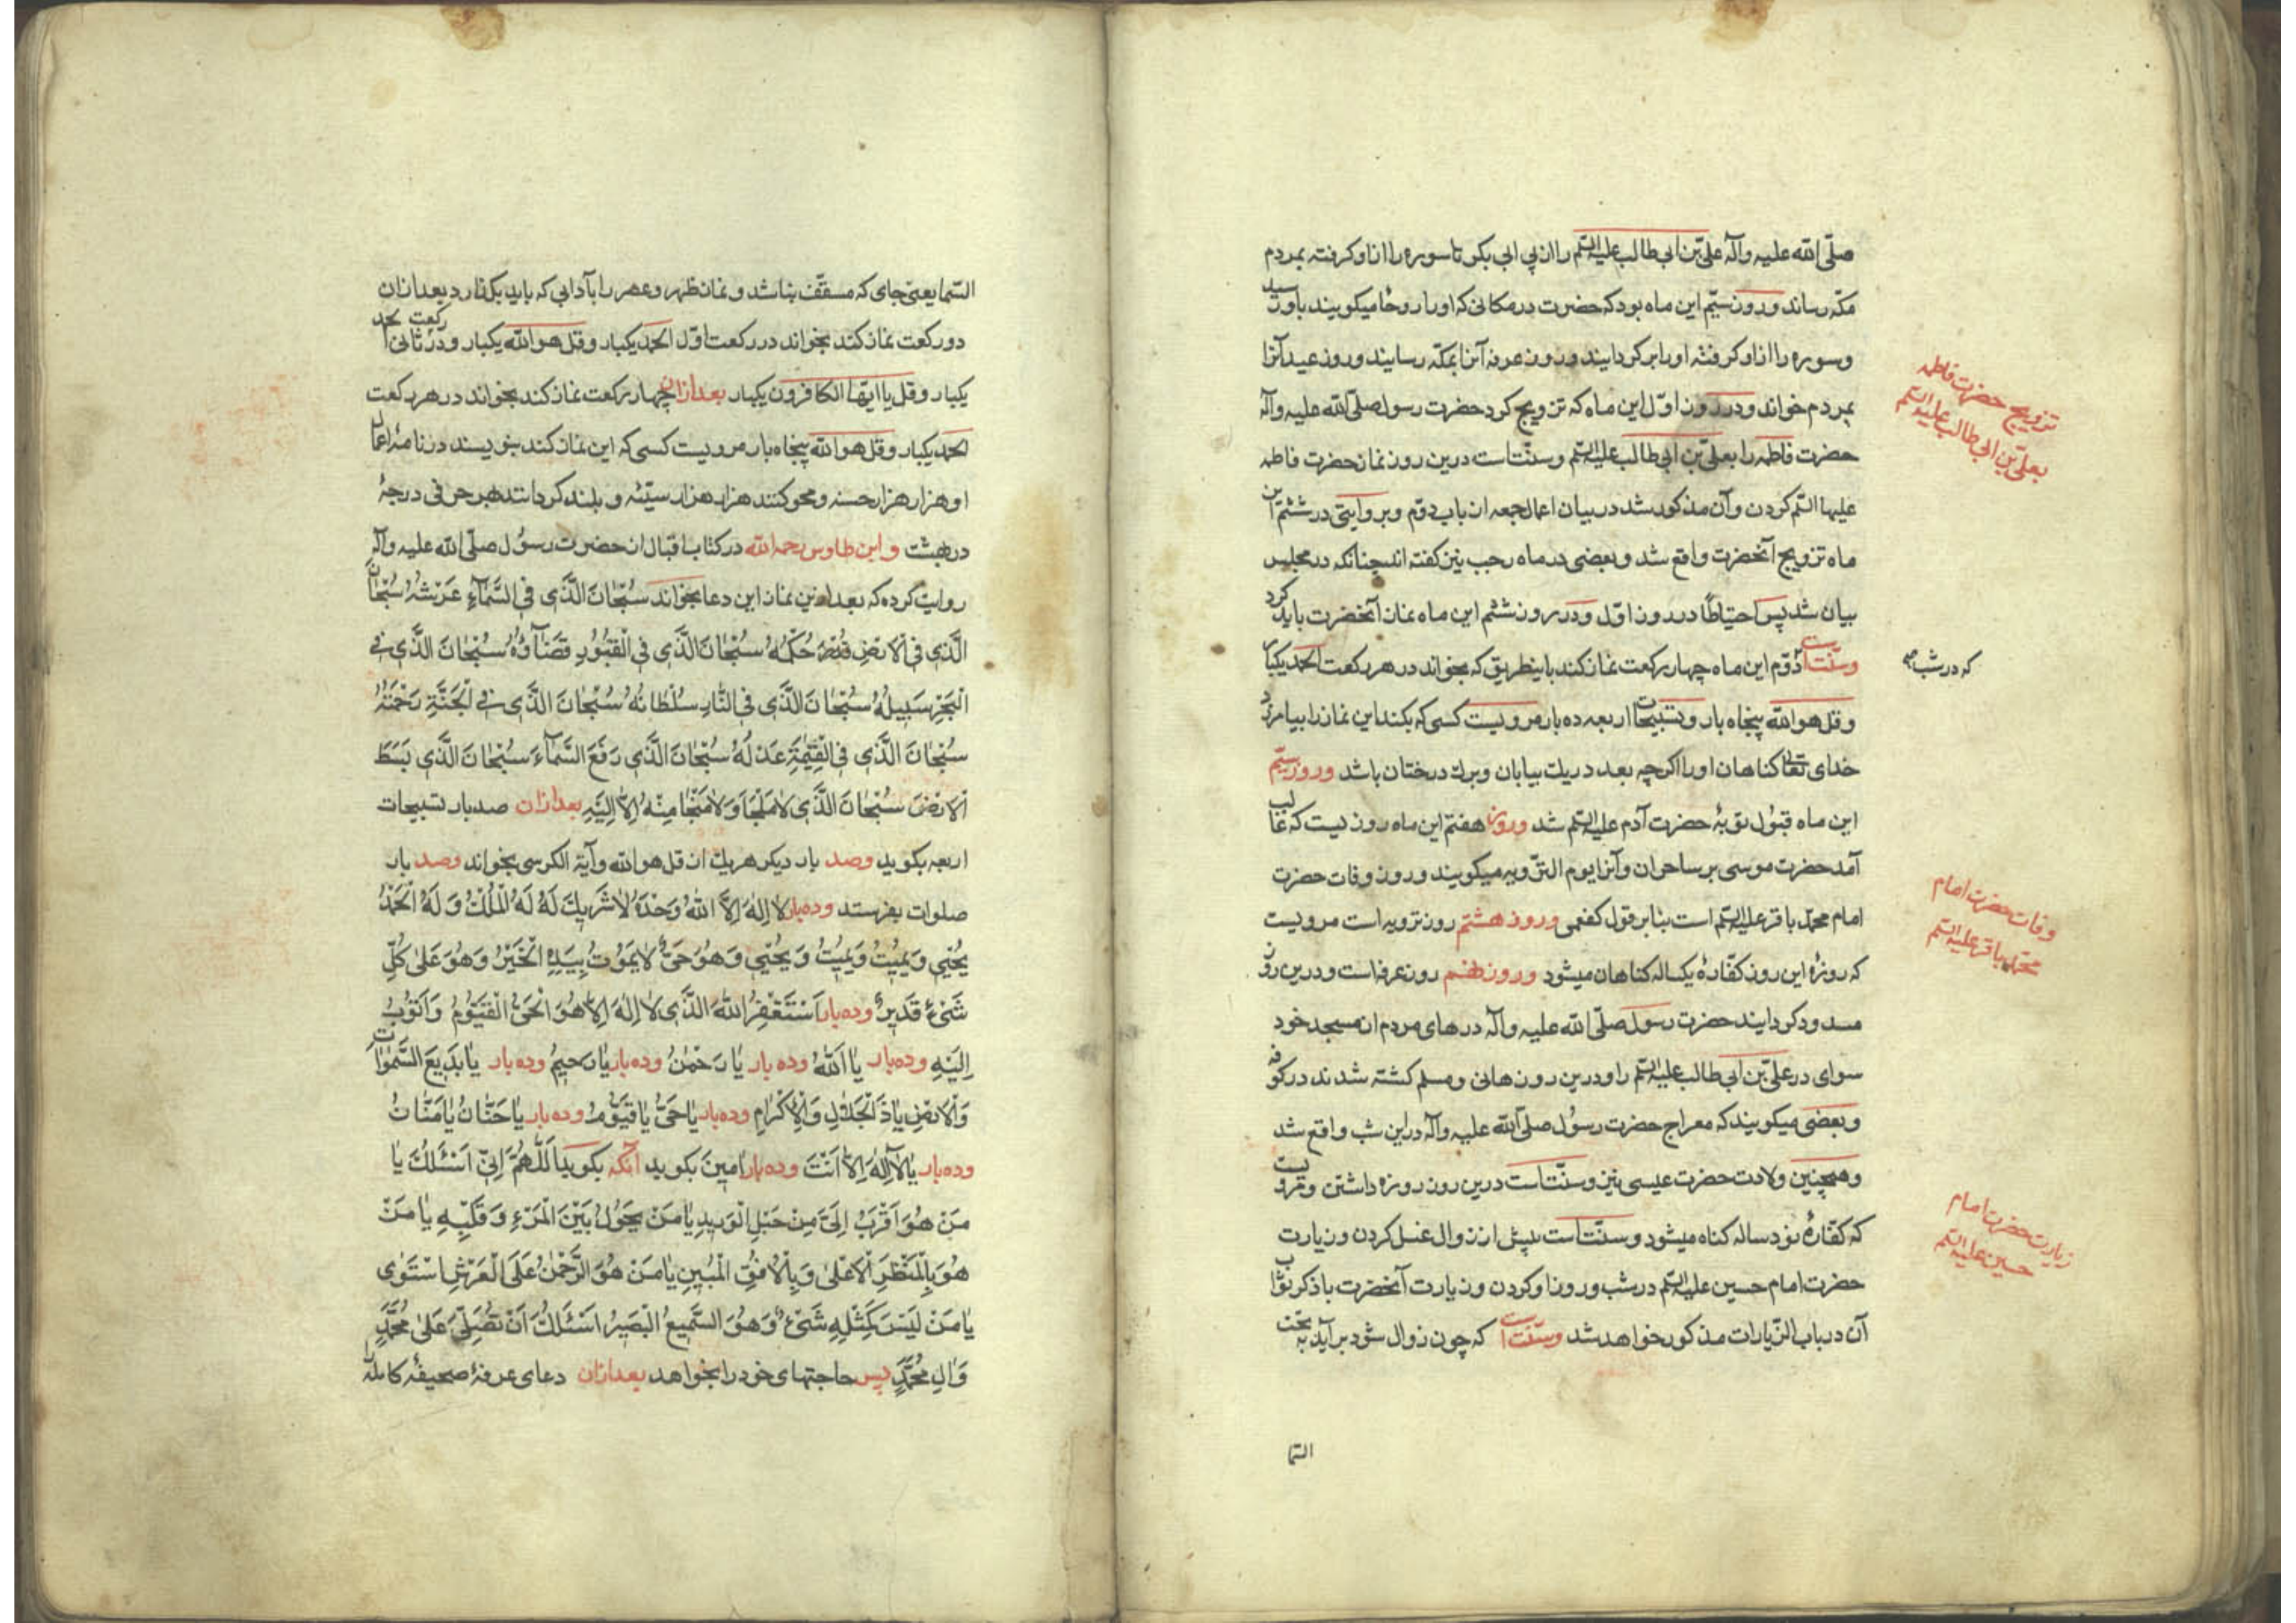 صلّی الله علیه وآله علیّ بن ابی طالب علیه السّلم را از پی ابی بکر تا سوره را از او کرفته بمردم
مکّه رساند و روز سیّم این ماه بود که حضرت در مکانی که او را روحا میکویند باو رسید
وسوره را از او کرفته او را بر کردایند و روز عرفه آنرا بمکّه رسایند و روز عید آنرا
بمردم خواند و در روز اوّل این ماه که تزویج کرد حضرت رسول صلّی الله علیه وآله
حضرت فاطمه را بعلیّ بن ابی طالب علیه السّلم وسنّتاست درین روز نماز حضرت فاطمه
علیها السّلم کردن وآن مذکور شد در بیان اعمال جمعه از باب دوّم وبروایتی در ششم این
ماه تزویج آنحضرت واقع شد وبعضی در ماه رجب نیز کفته اند چنانکه در مجلس
بیان شد پس احتیاطًا در روز اوّل ودر روز ششم این ماه نماز آنحضرت باید کرد
وسنّت است دوّم این ماه چهار رکعت نماز کند باینطریق که بخواند در هر رکعت الحمد یکبار
وقل هو الله پنجاه بار وتسبیحات اربعه ده بار مرویست کسی که بکند این نماز را بیامرزد
خدای تعالی کناهان او را اکرچه بعدد ریك بیابان وبرك درختان باشد وروز سیّم
این ماه قبول توبهٔ حضرت آدم علیه السّلم شد وروز هفتم این ماه روزیست که غالب
آمد حضرت موسی بر ساحران وآنرا یوم الترویه میکویند وروز وفات حضرت
امام محمّد باقر علیه السّلم است بنابر قول کفعمی وروز هشتم روز ترویه است مرویست
که روزهٔ این روز کفّارهٔ یکساله کناهان میشود وروز نهم روز عرفه است ودرین روز
مسدود کردایند حضرت رسول صلّی الله علیه وآله درهای مردم از مسجد خود
سوای در علیّ بن ابی طالب علیه السّلم را ودرین روز هانی ومسلم کشته شدند در کوفه
وبعضی میکویند که معراج حضرت رسول صلّی الله علیه وآله در این شب واقع شد
وهمچنین ولادت حضرت عیسی نیز وسنّتاست درین روز روزه داشتن ومرویست
که کفّارهٔ نود ساله کناه میشود وسنّتاست پیش از زوال غسل کردن وزیارت
حضرت امام حسین علیه السّلم در شب وروز او کردن وزیارت آنحضرت با ذکر ثواب
آن در باب الزّیارات مذکور خواهد شد وسنّت است که چون زوال شود بر آید به تحت
السّما
تزویج حضرت فاطمه
بعلیّ بن ابی طالب علیه السّلم
که در شب
وفات حضرت امام
محمّد باقر علیه السّلم
زیارت حضرت امام
حسین علیه السّلم
السّما یعنی جای که مسقّف نباشد ونماز ظهر وعصر را بآدابی که باید بکذارد بعد ازان
دو رکعت نماز کند بخواند در رکعت اوّل الحمد یکبار وقل هو الله یکبار ودر رکعت ثانی الحمد
یکبار وقل یا ایّها الکافرون یکبار بعد ازان چهار رکعت نماز کند بخواند در هر رکعت
الحمد یکبار وقل هو الله پنجاه بار مرویست کسی که این نماز کند بنویسند در نامهٔ اعمال
او هزار هزار حسنه ومحو کنند هزار هزار سیّئه وبلند کردانند بهر حرفی درجهٔ
در بهشت وابن طاوس رحمه الله در کتاب اقبال از حضرت رسول صلّی الله علیه وآله
روایت کرده که بعد ازین نماز این دعا بخواند سُبْحانَ الَّذی فِی السَّمآءِ عَرْشُهُ سُبْحانَ
الَّذی فِی الْاَرْضِ حُکْمُهُ سُبْحانَ الَّذی فِی الْقُبُورِ قَضآؤُهُ سُبْحانَ الَّذی فِی
الْبَحْرِ سَبیلُهُ سُبْحانَ الَّذی فِی النّارِ سُلْطانُهُ سُبْحانَ الَّذی فِی الْجَنَّةِ رَحْمَتُهُ
سُبْحانَ الَّذی فِی الْقِیٰمَةِ عَدْلُهُ سُبْحانَ الَّذی رَفَعَ السَّمآءَ سُبْحانَ الَّذی بَسَطَ
الْاَرْضَ سُبْحانَ الَّذی لا مَلْجَاَ وَلا مَنْجا مِنْهُ اِلّا اِلَیْهِ بعد ازان صد بار تسبیحات
اربعه بکوید وصد بار دیکر هر یك از قل هو الله وآیة الکرسی بخواند وصد بار
صلوات بفرستد وده بار لا اِلٰهَ اِلَّا اللهُ وَحْدَهُ لا شَریكَ لَهُ لَهُ الْمُلْكُ وَلَهُ الْحَمْدُ
یُحْیی وَیُمیتُ وَیُمیتُ وَیُحْیی وَهُوَ حَیٌّ لا یَمُوتُ بِیَدِهِ الْخَیْرُ وَهُوَ عَلیٰ کُلِّ
شَیْءٍ قَدیرٌ وده بار اَسْتَغْفِرُ اللهَ الَّذی لا اِلٰهَ اِلّا هُوَ الْحَیُّ الْقَیُّومُ وَاَتُوبُ
اِلَیْهِ وده بار یا اَللهُ وده بار یا رَحْمٰنُ وده بار یا رَحیمُ وده بار یا بَدیعَ السَّمٰواتِ
وَالْاَرْضِ یا ذَا الْجَلالِ وَالْاِکْرامِ وده بار یا حَیُّ یا قَیُّومُ وده بار یا حَنّانُ یا مَنّانُ
وده بار یا لا اِلٰهَ اِلّا اَنْتَ وده بار امینَ بکوید آنکه بکوید اَللّٰهُمَّ اِنّی اَسْئَلُكَ یا
مَنْ هُوَ اَقْرَبُ اِلَیَّ مِنْ حَبْلِ الْوَریدِ یا مَنْ یَحُولُ بَیْنَ الْمَرْءِ وَقَلْبِهِ یا مَنْ
هُوَ بِالْمَنْظَرِ الْاَعْلیٰ وَبِالْاُفُقِ الْمُبینِ یا مَنْ هُوَ الرَّحْمٰنُ عَلَی الْعَرْشِ اسْتَویٰ
یا مَنْ لَیْسَ کَمِثْلِهِ شَیْءٌ وَهُوَ السَّمیعُ الْبَصیرُ اَسْئَلُكَ اَنْ تُصَلِّیَ عَلیٰ مُحَمَّدٍ
وَالِ مُحَمَّدٍ پس حاجتهای خود را بخواهد بعد ازان دعای عرفهٔ صحیفهٔ کامله را